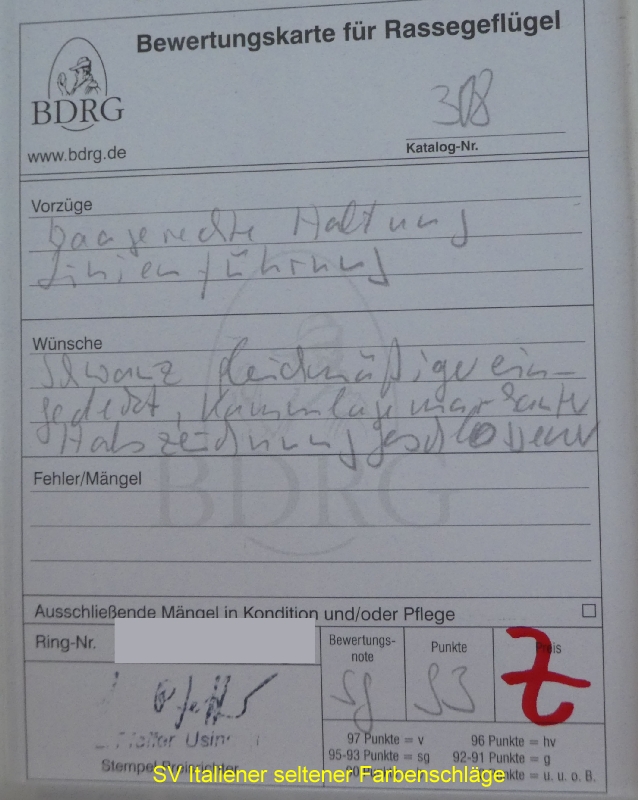 Bewertungskarte für Rassegeflügel
BDRG
www.bdrg.de
308
Katalog-Nr.
Vorzüge
waagerechte Haltung
Linienführung
Wünsche
Schwanz gleichmäßiger ein-
gedeckt, Kammlage markanter
Halszeichnung geschlossener
Fehler/Mängel
BDRG
Ausschließende Mängel in Kondition und/oder Pflege
Ring-Nr.
Bewertungs-
note
Punkte
Preis
sg
93
Z
Usin
97 Punkte = v
96 Punkte = hv
95-93 Punkte = sg
92-91 Punkte = g
Punkte = u. u. o. B.
Stempel Preisrichter
SV Italiener seltener Farbenschläge